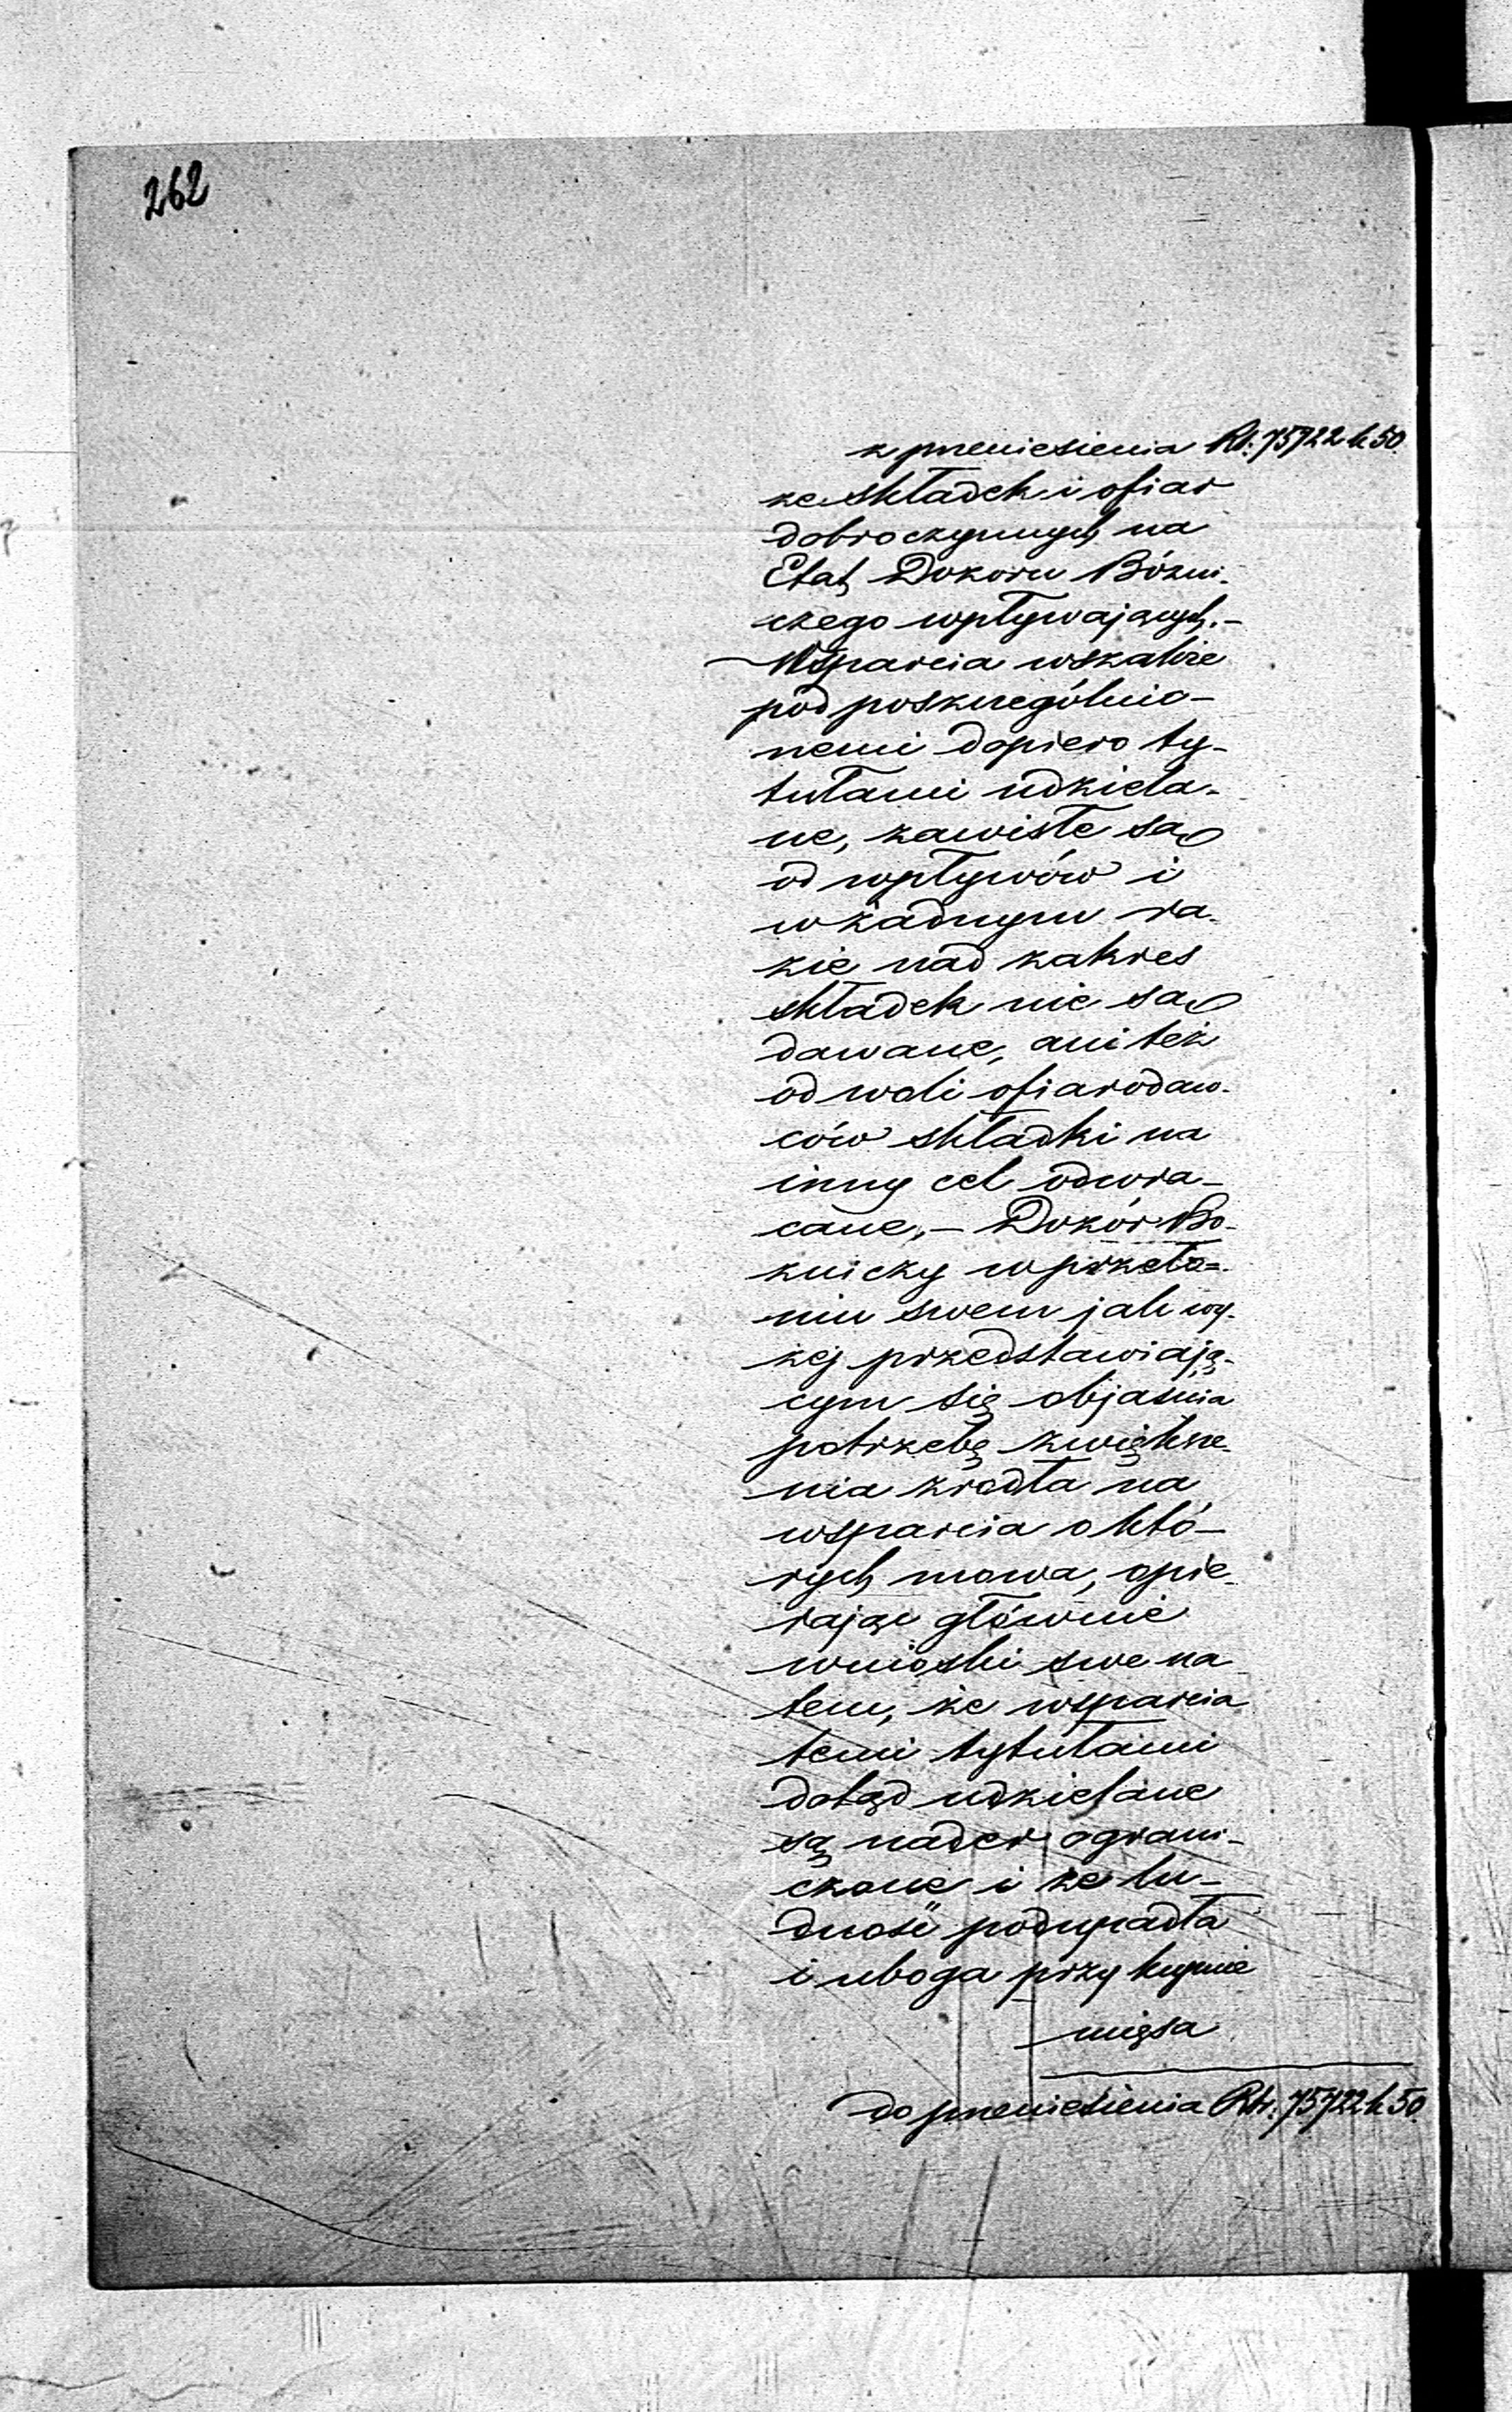 262
z przeniesienia Rs. 75722 k 50.
ze składek i ofiar
dobroczynnych na
Etat Dozoru Bóżni-
czego wpływających. –
Wsparcia w skali
pod poszczególnio-
nemi dopiero ty-
tułami udziela-
ne, zawisłe są
od wpływów i
w żadnym ra-
zie nad zakres
składek nie są
dawane, ani też
od woli ofiarodaw-
ców składki na
inny cel odwra-
cane, – Dozór Bo-
zniczy w przeło=
niu swem jak wy-
żej przedstawiają-
cym się objaśnia
potrzebę zwiększe-
nia źrodła na
wsparcia o któ-
rych mowa, opie-
rając głównie
wnioski swe na
tem, że wsparcia
temi tytułami
dotąd udzielane
są nader ograni-
czone i że lu-
dność podupadła
i uboga przy kupnie
mięsa
do przeniesienia Rs. 75722 k 50.